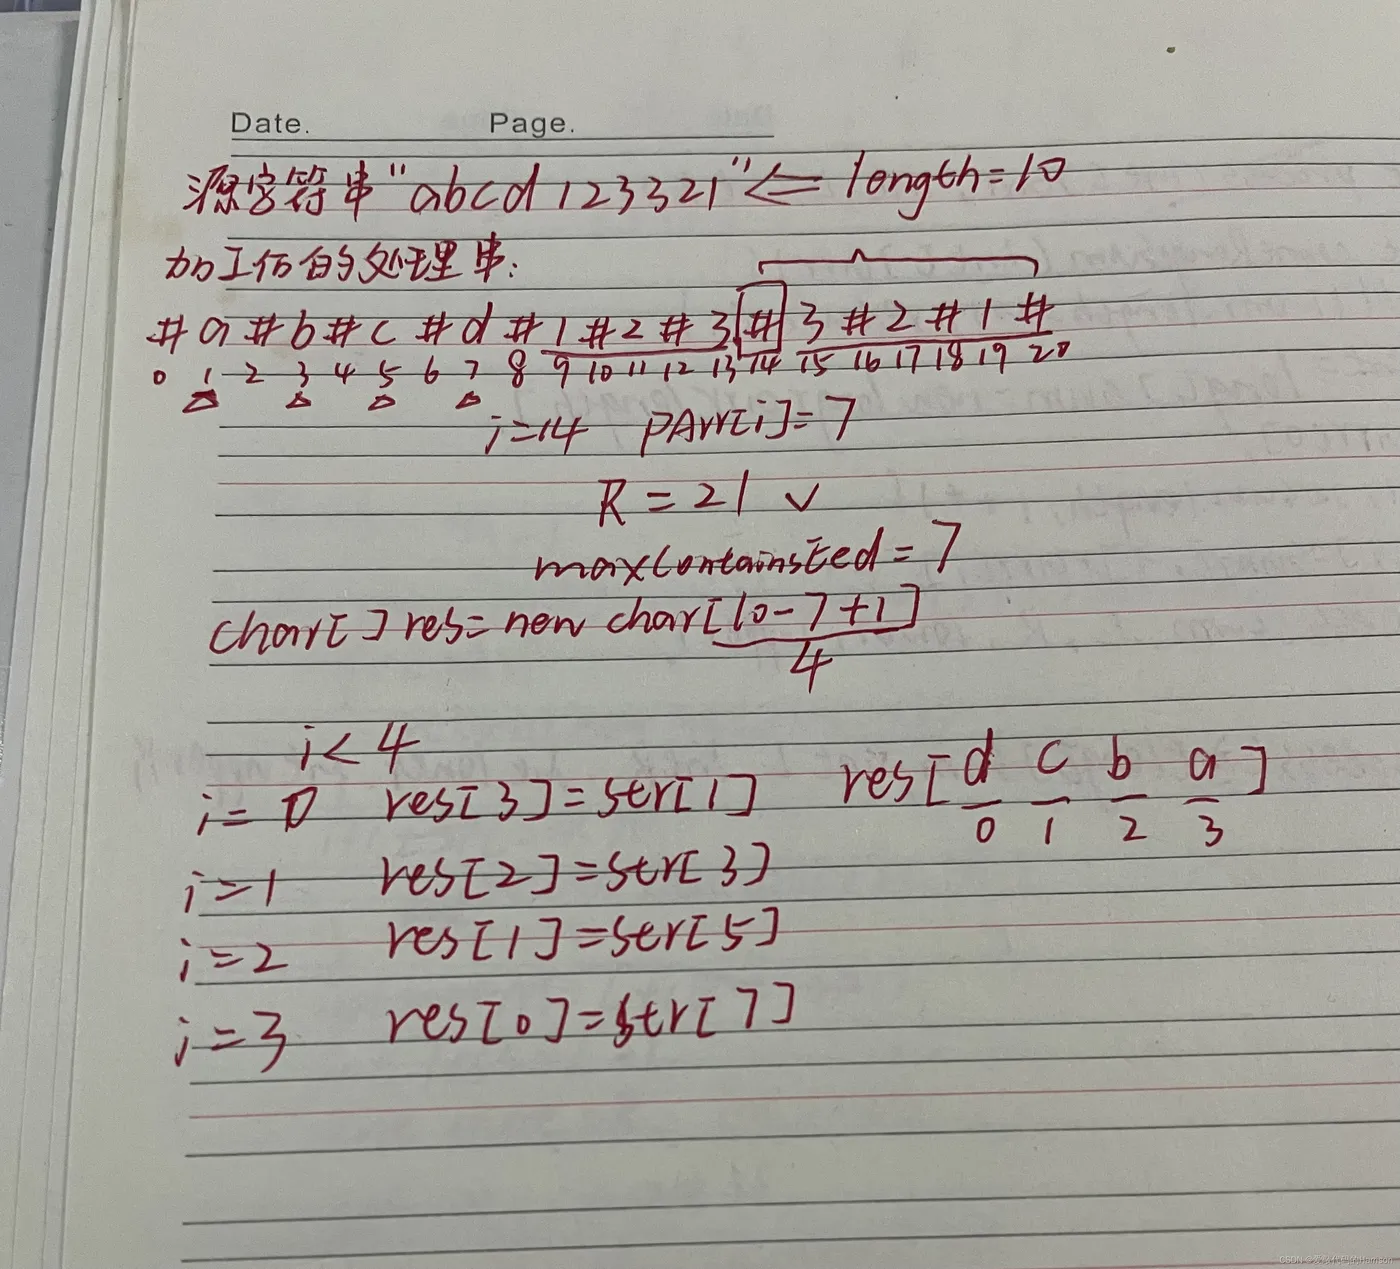 Date. Page.
源字符串"abcd123321" <= length=10
加工后的处理串:
#a#b#c#d#1#2#3#3#2#1#
0 1 2 3 4 5 6 7 8 9 10 11 12 13 14 15 16 17 18 19 20
i=14 pArr[i]=7
R=21 ✓
maxContainsEed=7
char[] res=new char[10-7+1]
4
i<4
i=0 res[3]=str[1] res[d c b a]
0 1 2 3
i=1 res[2]=str[3]
i=2 res[1]=str[5]
i=3 res[0]=str[7]